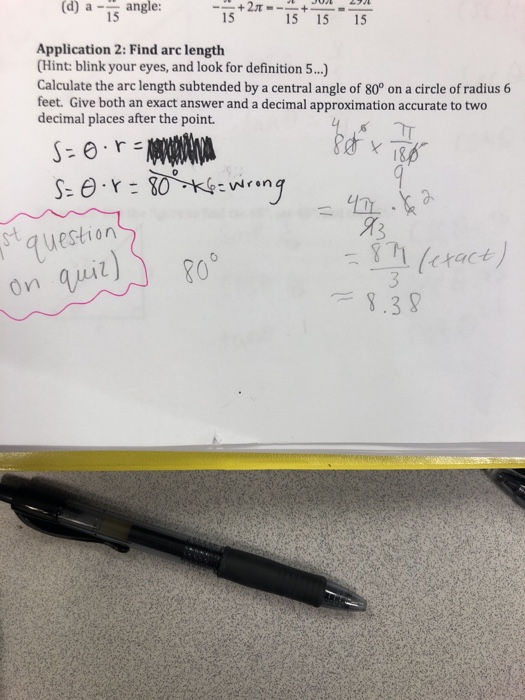 (d) a - π/15 angle:
- π/15 + 2π = - π/15 + 30π/15 = 29π/15
Application 2: Find arc length
(Hint: blink your eyes, and look for definition 5...)
Calculate the arc length subtended by a central angle of 80⁰ on a circle of radius 6
feet. Give both an exact answer and a decimal approximation accurate to two
decimal places after the point.
S = θ · r =
S = θ · r = 80° · 6 = wrong
st question
on quiz)
80°
4
80° × π/180°
9
= 4π/93 · 6 2
= 8π/3 (exact)
≈ 8.38